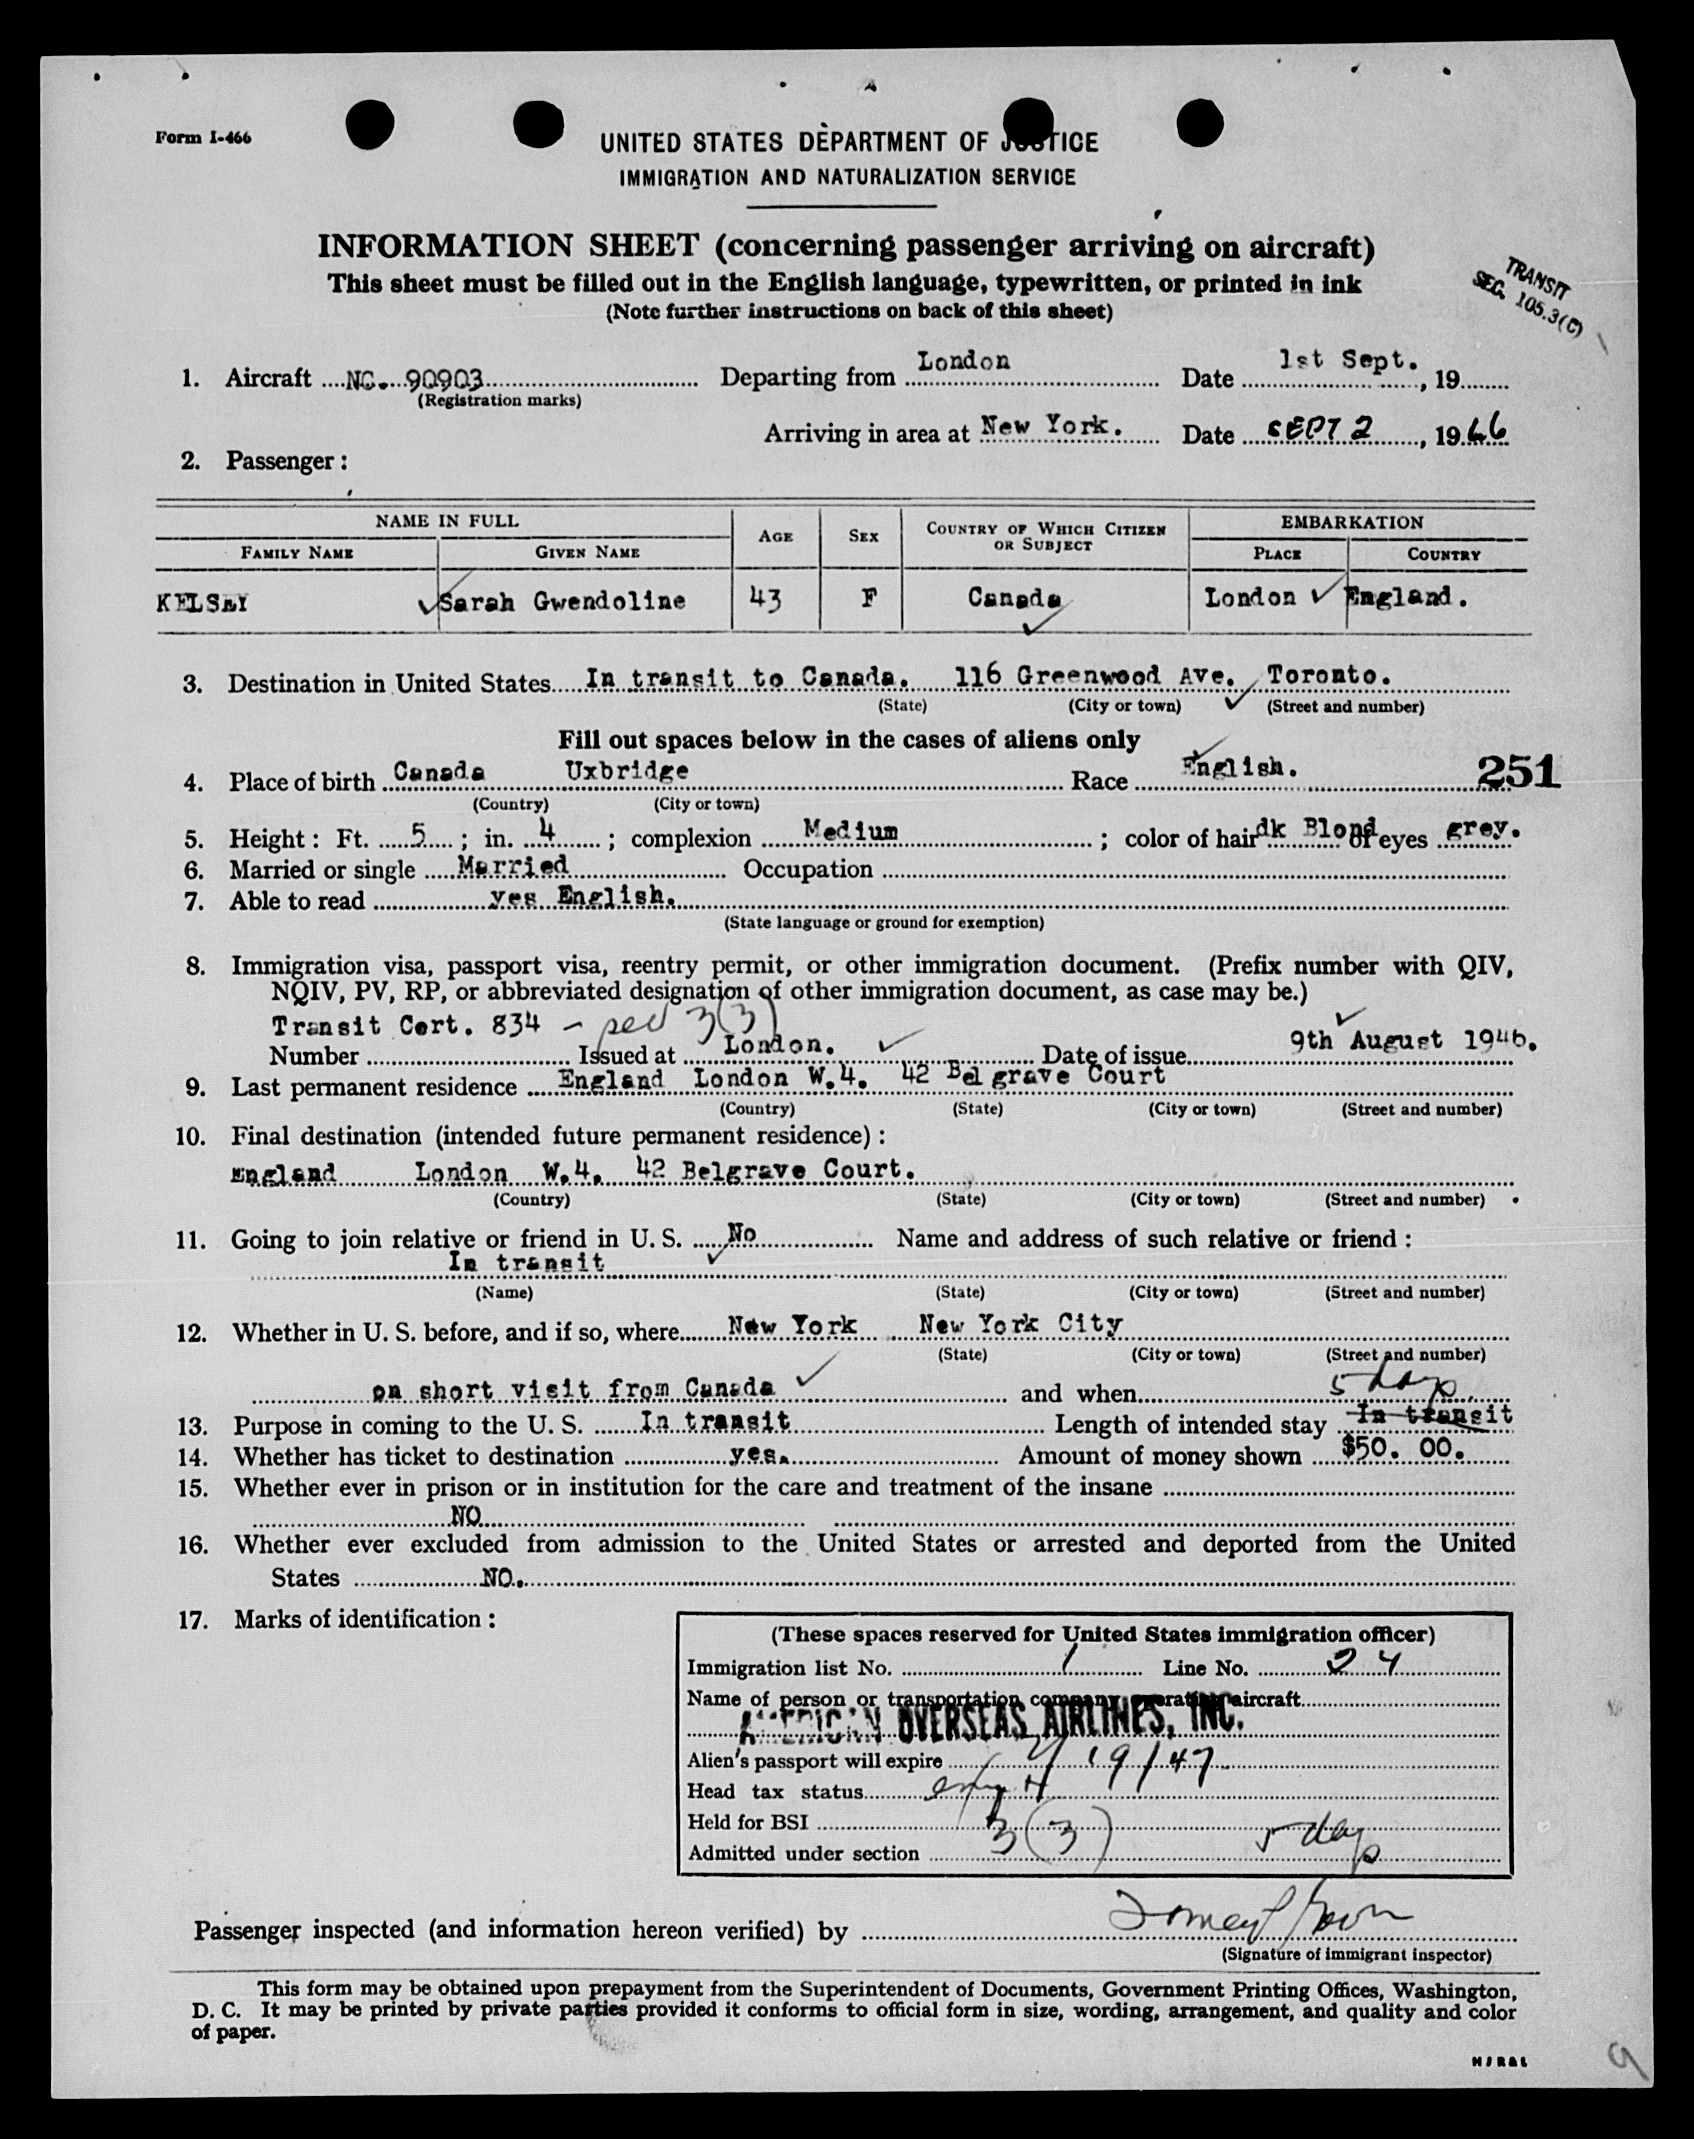 Form I-466
UNITED STATES DEPARTMENT OF JUSTICE
IMMIGRATION AND NATURALIZATION SERVICE
INFORMATION SHEET (concerning passenger arriving on aircraft)
This sheet must be filled out in the English language, typewritten, or printed in ink
(Note further instructions on back of this sheet)
TRANSIT
SEC. 105.3(C)
1. Aircraft NC. 90903 Departing from London Date 1st Sept., 19
(Registration marks)
Arriving in area at New York. Date SEPT 2, 1946
2. Passenger:
NAME IN FULL AGE SEX COUNTRY OF WHICH CITIZEN OR SUBJECT EMBARKATION
FAMILY NAME GIVEN NAME PLACE COUNTRY
KELSEY Sarah Gwendoline 43 F Canada London England.
3. Destination in United States In transit to Canada. 116 Greenwood Ave. Toronto.
(State) (City or town) (Street and number)
Fill out spaces below in the cases of aliens only
4. Place of birth Canada Uxbridge Race English. 251
(Country) (City or town)
5. Height: Ft. 5; in. 4; complexion Medium; color of hair dk Blond of eyes grey.
6. Married or single Married Occupation
7. Able to read yes English.
(State language or ground for exemption)
8. Immigration visa, passport visa, reentry permit, or other immigration document. (Prefix number with QIV,
NQIV, PV, RP, or abbreviated designation of other immigration document, as case may be.)
Transit Cert. 834 - 3(3)
Number Issued at London. Date of issue 9th August 1946.
9. Last permanent residence England London W.4. 42 Belgrave Court
(Country) (State) (City or town) (Street and number)
10. Final destination (intended future permanent residence):
England London W.4. 42 Belgrave Court.
(Country) (State) (City or town) (Street and number)
11. Going to join relative or friend in U. S. No Name and address of such relative or friend:
In transit
(Name) (State) (City or town) (Street and number)
12. Whether in U. S. before, and if so, where New York New York City
(State) (City or town) (Street and number)
on short visit from Canada and when 5 days
13. Purpose in coming to the U. S. In transit Length of intended stay In transit
14. Whether has ticket to destination yes. Amount of money shown $50. 00.
15. Whether ever in prison or in institution for the care and treatment of the insane
NO
16. Whether ever excluded from admission to the United States or arrested and deported from the United
States NO.
17. Marks of identification:
(These spaces reserved for United States immigration officer)
Immigration list No. 1 Line No. 24
Name of person or transportation company operating aircraft
AMERICAN OVERSEAS AIRLINES, INC.
Alien's passport will expire 19/47
Head tax status
Held for BSI
Admitted under section 3(3) 5 days
Passenger inspected (and information hereon verified) by
(Signature of immigrant inspector)
This form may be obtained upon prepayment from the Superintendent of Documents, Government Printing Offices, Washington,
D. C. It may be printed by private parties provided it conforms to official form in size, wording, arrangement, and quality and color
of paper.
9